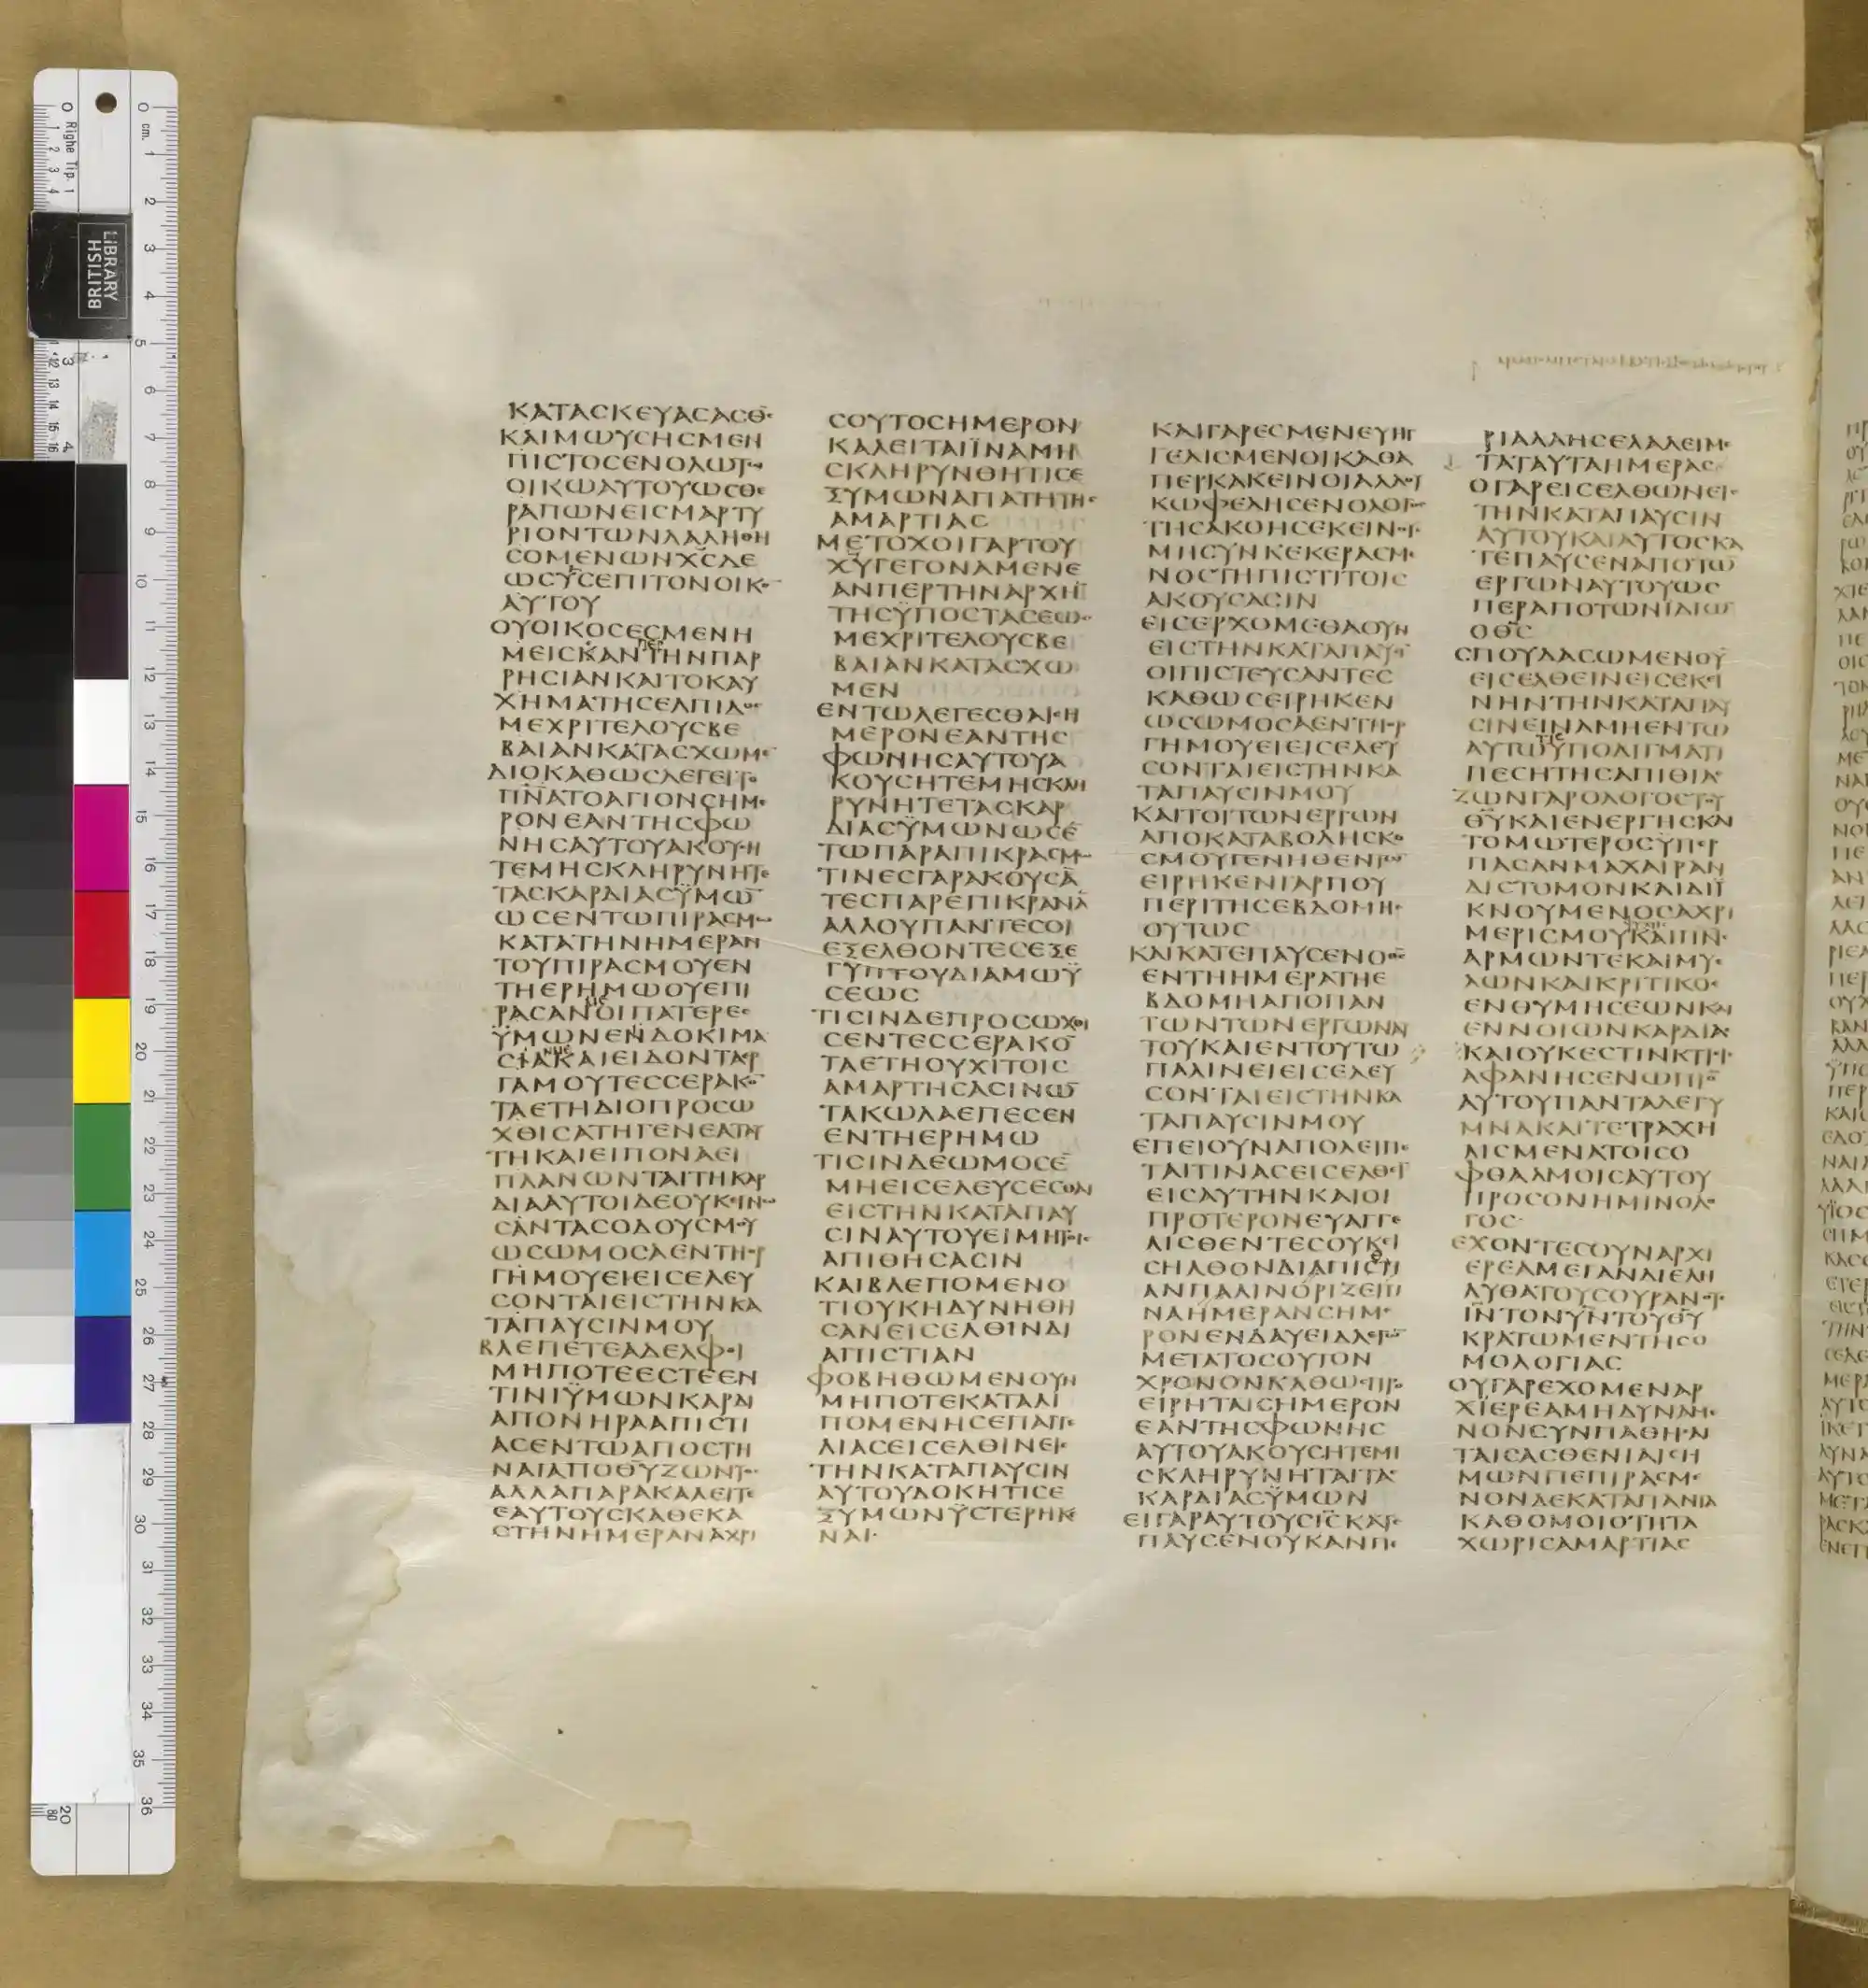 ΚΑΤΑСΚΕΥΑСΑСΘ̅С
ΚΑΙΜΩΥСΗСΜΕΝ
ΠΙСΤΟСΕΝΟΛΩΤΩ
ΟΙΚΩΑΥΤΟΥΩСΘΕ
ΡΑΠΩΝΕΙСΜΑΡΤΥ
ΡΙΟΝΤΩΝΛΑΛΗΘΗ
СΟΜΕΝΩΝΧ̅СΔΕ
ΩСΥ̅СΕΠΙΤΟΝΟΙΚΟ̅
ΑΥΤΟΥ
ΟΥΟΙΚΟСΕСΜΕΝΗ
ΜΕΙСΚΑΝΤΗΝΠΑΡ
ΡΗСΙΑΝΚΑΙΤΟΚΑΥ
ΧΗΜΑΤΗСΕΛΠΙΔΟС
ΜΕΧΡΙΤΕΛΟΥСΒΕ
ΒΑΙΑΝΚΑΤΑСΧΩΜΕ̅
ΔΙΟΚΑΘΩСΛΕΓΕΙΤΟ
Π̅Ν̅ΑΤΟΑΓΙΟΝСΗΜΕ
ΡΟΝΕΑΝΤΗСΦΩ
ΝΗСΑΥΤΟΥΑΚΟΥСΗ
ΤΕΜΗСΚΛΗΡΥΝΗΤΕ
ΤΑСΚΑΡΔΙΑСΫΜΩ̅
ΩСΕΝΤΩΠΙΡΑСΜΩ
ΚΑΤΑΤΗΝΗΜΕΡΑΝ
ΤΟΥΠΙΡΑСΜΟΥΕΝ
ΤΗΕΡΗΜΩΟΥΕΠΙ
ΡΑСΑΝΟΙΠΑΤΕΡΕС
ΫΜΩΝΕΝΔΟΚΙΜΑ
СΙΑΚΑΙΕΙΔΟΝΤΑΕΡ
ΓΑΜΟΥΤΕССΕΡΑΚΟ̅
ΤΑΕΤΗΔΙΟΠΡΟСΩ
ΧΘΙСΑΤΗΓΕΝΕΑΤΑΥ
ΤΗΚΑΙΕΙΠΟΝΑΕΙ
ΠΛΑΝΩΝΤΑΙΤΗΚΑΡ
ΔΙΑΑΥΤΟΙΔΕΟΥΚΕΓΝΩ
СΑΝΤΑСΟΔΟΥСΜΟΥ
ΩСΩΜΟСΑΕΝΤΗΟΡ
ΓΗΜΟΥΕΙΕΙСΕΛΕΥ
СΟΝΤΑΙΕΙСΤΗΝΚΑ
ΤΑΠΑΥСΙΝΜΟΥ
ΒΛΕΠΕΤΕΑΔΕΛΦΟΙ
ΜΗΠΟΤΕΕСΤΕΕΝ
ΤΙΝΙΫΜΩΝΚΑΡΔΙ
ΑΠΟΝΗΡΑΑΠΙСΤΙ
ΑСΕΝΤΩΑΠΟСΤΗ
ΝΑΙΑΠΟΘ̅Υ̅ΖΩΝΤΟС
ΑΛΛΑΠΑΡΑΚΑΛΕΙΤΕ
ΕΑΥΤΟΥСΚΑΘΕΚΑ
СΤΗΝΗΜΕΡΑΝΑΧΡΙ
СΟΥΤΟСΗΜΕΡΟΝ
ΚΑΛΕΙΤΑΙΪΝΑΜΗ
СΚΛΗΡΥΝΘΗΤΙСΕ
ΞΥΜΩΝΑΠΑΤΗΤΗС
ΑΜΑΡΤΙΑС
ΜΕΤΟΧΟΙΓΑΡΤΟΥ
Χ̅Υ̅ΓΕΓΟΝΑΜΕΝΕ
ΑΝΠΕΡΤΗΝΑΡΧΗ̅
ΤΗСΫΠΟСΤΑСΕΩС
ΜΕΧΡΙΤΕΛΟΥСΒΕ
ΒΑΙΑΝΚΑΤΑСΧΩ
ΜΕΝ
ΕΝΤΩΛΕΓΕСΘΑΙСΗ
ΜΕΡΟΝΕΑΝΤΗС
ΦΩΝΗСΑΥΤΟΥΑ
ΚΟΥСΗΤΕΜΗСΚΛΗ
ΡΥΝΗΤΕΤΑСΚΑΡ
ΔΙΑСΫΜΩΝΩСΕ̅
ΤΩΠΑΡΑΠΙΚΡΑСΜΩ
ΤΙΝΕСΓΑΡΑΚΟΥСΑ̅
ΤΕСΠΑΡΕΠΙΚΡΑΝΑ̅
ΑΛΛΟΥΠΑΝΤΕСΟΙ
ΕΞΕΛΘΟΝΤΕСΕΞΕ
ΓΥΠΤΟΥΔΙΑΜΩΫ
СΕΩС
ΤΙСΙΝΔΕΠΡΟСΩΧΘΙ
СΕΝΤΕССΕΡΑΚΟ̅
ΤΑΕΤΗΟΥΧΙΤΟΙС
ΑΜΑΡΤΗСΑСΙΝΩ̅
ΤΑΚΩΛΑΕΠΕСΕΝ
ΕΝΤΗΕΡΗΜΩ
ΤΙСΙΝΔΕΩΜΟСΕ̅
ΜΗΕΙСΕΛΕΥСΕСΘΑΙ
ΕΙСΤΗΝΚΑΤΑΠΑΥ
СΙΝΑΥΤΟΥΕΙΜΗΤΟΙС
ΑΠΙΘΗСΑСΙΝ
ΚΑΙΒΛΕΠΟΜΕΝΟ
ΤΙΟΥΚΗΔΥΝΗΘΗ
СΑΝΕΙСΕΛΘΙΝΔΙ
ΑΠΙСΤΙΑΝ
ΦΟΒΗΘΩΜΕΝΟΥΝ
ΜΗΠΟΤΕΚΑΤΑΛΙ
ΠΟΜΕΝΗСΕΠΑΓΓΕ
ΛΙΑСΕΙСΕΛΘΙΝΕΙС
ΤΗΝΚΑΤΑΠΑΥСΙΝ
ΑΥΤΟΥΔΟΚΗΤΙСΕ
ΞΥΜΩΝΫСΤΕΡΗΚΕ
ΝΑΙ·
ΚΑΙΓΑΡΕСΜΕΝΕΥΗΓ
ΓΕΛΙСΜΕΝΟΙΚΑΘΑ
ΠΕΡΚΑΚΕΙΝΟΙΑΛΛΟΥ
ΚΩΦΕΛΗСΕΝΟΛΟΓΟС
ΤΗСΑΚΟΗСΕΚΕΙΝΟΥС
ΜΗСΥΝΚΕΚΕΡΑСΜΕ
ΝΟСΤΗΠΙСΤΙΤΟΙС
ΑΚΟΥСΑСΙΝ
ΕΙСΕΡΧΟΜΕΘΑΟΥΝ
ΕΙСΤΗΝΚΑΤΑΠΑΥСΙ̅
ΟΙΠΙСΤΕΥСΑΝΤΕС
ΚΑΘΩСΕΙΡΗΚΕΝ
ΩСΩΜΟСΑΕΝΤΗΟΡ
ΓΗΜΟΥΕΙΕΙСΕΛΕΥ
СΟΝΤΑΙΕΙСΤΗΝΚΑ
ΤΑΠΑΥСΙΝΜΟΥ
ΚΑΙΤΟΙΤΩΝΕΡΓΩΝ
ΑΠΟΚΑΤΑΒΟΛΗСΚΟ
СΜΟΥΓΕΝΗΘΕΝΤΩ̅
ΕΙΡΗΚΕΝΓΑΡΠΟΥ
ΠΕΡΙΤΗСΕΒΔΟΜΗС
ΟΥΤΩС
ΚΑΙΚΑΤΕΠΑΥСΕΝΟΘ̅С
ΕΝΤΗΗΜΕΡΑΤΗΕ
ΒΔΟΜΗΑΠΟΠΑΝ
ΤΩΝΤΩΝΕΡΓΩΝΑΥ
ΤΟΥΚΑΙΕΝΤΟΥΤΩ
ΠΑΛΙΝΕΙΕΙСΕΛΕΥ
СΟΝΤΑΙΕΙСΤΗΝΚΑ
ΤΑΠΑΥСΙΝΜΟΥ
ΕΠΕΙΟΥΝΑΠΟΛΕΙΠΕ
ΤΑΙΤΙΝΑСΕΙСΕΛΘΕΙ̅
ΕΙСΑΥΤΗΝΚΑΙΟΙ
ΠΡΟΤΕΡΟΝΕΥΑΓΓΕ
ΛΙСΘΕΝΤΕСΟΥΚΕΙ
СΗΛΘΟΝΔΙΑΠΙСΤΙ
ΑΝΠΑΛΙΝΟΡΙΖΕΙΤΙ
ΝΑΗΜΕΡΑΝСΗΜΕ
ΡΟΝΕΝΔΑΥΕΙΔΛΕΓΩ̅
ΜΕΤΑΤΟСΟΥΤΟΝ
ΧΡΟΝΟΝΚΑΘΩСΠΡΟ
ΕΙΡΗΤΑΙСΗΜΕΡΟΝ
ΕΑΝΤΗСΦΩΝΗС
ΑΥΤΟΥΑΚΟΥСΗΤΕΜΗ
СΚΛΗΡΥΝΗΤΑΙΤΑС
ΚΑΡΔΙΑСΫΜΩΝ
ΕΙΓΑΡΑΥΤΟΥСΙ̅С̅ΚΑΤΕ
ΠΑΥСΕΝΟΥΚΑΝΠΕ
ΡΙΑΛΛΗСΕΛΑΛΕΙΜΕ
ΤΑΤΑΥΤΑΗΜΕΡΑС
ΟΓΑΡΕΙСΕΛΘΩΝΕΙС
ΤΗΝΚΑΤΑΠΑΥСΙΝ
ΑΥΤΟΥΚΑΙΑΥΤΟСΚΑ
ΤΕΠΑΥСΕΝΑΠΟΤΩ̅
ΕΡΓΩΝΑΥΤΟΥΩС
ΠΕΡΑΠΟΤΩΝΪΔΙΩ̅
ΟΘ̅С
СΠΟΥΔΑСΩΜΕΝΟΥ̅
ΕΙСΕΛΘΕΙΝΕΙСΕΚΕΙ
ΝΗΝΤΗΝΚΑΤΑΠΑΥ
СΙΝΕΙΝΑΜΗΕΝΤΩ
ΑΥΤΩΫΠΟΔΙΓΜΑΤΙ
ΠΕСΗΤΗСΑΠΙΘΙΑС
ΖΩΝΓΑΡΟΛΟΓΟСΤΟΥ
Θ̅Υ̅ΚΑΙΕΝΕΡΓΗСΚΑΙ
ΤΟΜΩΤΕΡΟСΫΠΕΡ
ΠΑСΑΝΜΑΧΑΙΡΑΝ
ΔΙСΤΟΜΟΝΚΑΙΔΙΪ
ΚΝΟΥΜΕΝΟСΑΧΡΙ
ΜΕΡΙСΜΟΥΚΑΙΠΝ̅С
ΑΡΜΩΝΤΕΚΑΙΜΥΕ
ΛΩΝΚΑΙΚΡΙΤΙΚΟС
ΕΝΘΥΜΗСΕΩΝΚΑΙ
ΕΝΝΟΙΩΝΚΑΡΔΙΑС
ΚΑΙΟΥΚΕСΤΙΝΚΤΙСΙС
ΑΦΑΝΗСΕΝΩΠΙΟ̅
ΑΥΤΟΥΠΑΝΤΑΔΕΓΥ
ΜΝΑΚΑΙΤΕΤΡΑΧΗ
ΛΙСΜΕΝΑΤΟΙСΟ
ΦΘΑΛΜΟΙСΑΥΤΟΥ
ΠΡΟСΟΝΗΜΙΝΟΛΟ
ΓΟС·
ΕΧΟΝΤΕСΟΥΝΑΡΧΙ
ΕΡΕΑΜΕΓΑΝΔΙΕΛΗ
ΛΥΘΑΤΟΥСΟΥΡΑΝΟΥС
Ι̅Ν̅ΤΟΝΥ̅Ν̅ΤΟΥΘ̅Υ̅
ΚΡΑΤΩΜΕΝΤΗСΟ
ΜΟΛΟΓΙΑС
ΟΥΓΑΡΕΧΟΜΕΝΑΡ
ΧΙΕΡΕΑΜΗΔΥΝΑΜΕ
ΝΟΝСΥΝΠΑΘΗСΑΙ
ΤΑΙСΑСΘΕΝΙΑΙСΗ
ΜΩΝΠΕΠΙΡΑСΜΕ
ΝΟΝΔΕΚΑΤΑΠΑΝΤΑ
ΚΑΘΟΜΟΙΟΤΗΤΑ
ΧΩΡΙСΑΜΑΡΤΙΑС
BRITISH
LIBRARY